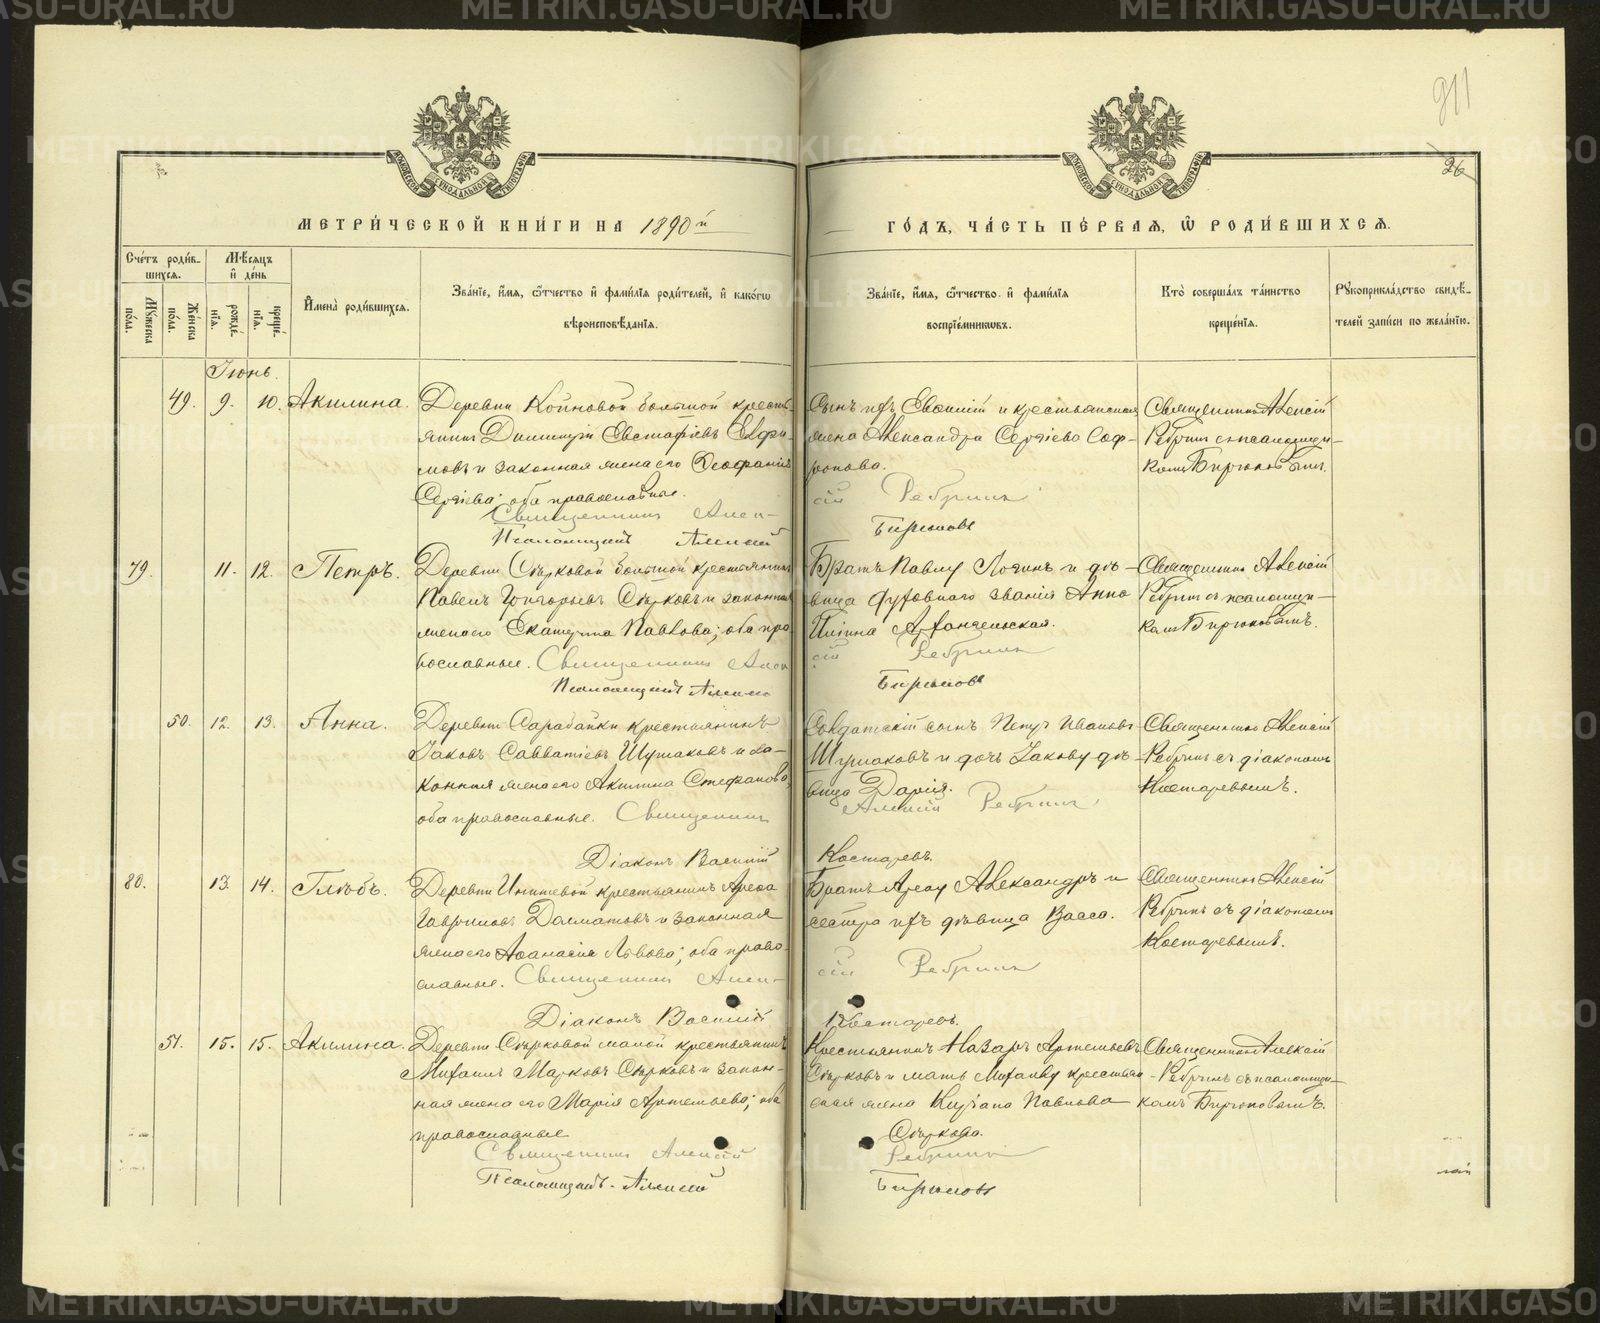 METRIKI.GASU-URAL.RU
911
26
МЕТРИ́ЧЕСКОЙ КНИ́ГИ НА 1890й
ГО́ДЪ, ЧА́СТЬ ПЕ́РВАЯ, Ѿ РОДИ́ВШИХСЯ.
Сче́тъ роди́в-
шихся.
Мѣ́сяцъ
и҆ де́нь
Мꙋ́жеска по́ла.
Же́нска по́ла.
рожде́-
нїя.
креще́-
нїя.
И҆мена̀ роди́вшихся.
Зва́нїе, и҆́мя, ѻ҆́тчество и҆ фами́лїя роди́телей, и҆ како́гѡ
вѣроисповѣ́данїя.
Зва́нїе, и҆́мя, ѻ҆́тчество и҆ фами́лїя
воспрїе́мникѡвъ.
Кто̀ соверша́лъ та́инство
креще́нїя.
Рꙋкоприкла́дство свидѣ́-
телей за́писи по жела́нїю.
Іюнь.
49. 9. 10. Акилина.
Деревни Койновой большой кресть-
янинъ Димитрій Евстафіевъ Евфи-
мовъ и законная жена его Ѳеофанія
Сергіева; оба православные.
Священникъ Алек-
Псаломщикъ Алексій
Сынъ ихъ Евсимій и крестьянская
жена Александра Сергіева Соф-
ронова.
сій Ребринъ
Бирюковъ
Священникъ Алексій
Ребринъ съ псаломщи-
комъ Бирюковымъ.
79. 11. 12. Петръ.
Деревни Сѣрковой большой крестьянинъ
Павелъ Григорьевъ Сѣрковъ и законная
жена его Екатерина Павлова; оба пра-
вославные. Священникъ Алек
Псаломщикъ Алексій
Братъ Павлу Логинъ и дѣ-
вица духовнаго званія Анна
Архангельская.
сій Ребринъ
Бирюковъ
Священникъ Алексій
Ребринъ съ псаломщи-
комъ Бирюковымъ.
50. 12. 13. Анна.
Деревни Сарабайки крестьянинъ
Іаковъ Савватіевъ Шушаковъ и за-
конная жена его Акилина Стефанова,
оба православные. Священникъ
Діаконъ Василій
Солдатскій сынъ Петръ Ивановъ
Шушаковъ и дочь Іакову дѣ-
вица Дарія.
Алексій Ребринъ
Костаревъ.
Священникъ Алексій
Ребринъ съ діакономъ
Костаревымъ.
80. 13. 14. Глѣбъ.
Деревни крестьянинъ Ареѳа
Гавриловъ Далматовъ и законная
жена его Аѳанасія Львова; оба право-
славные. Священникъ Алек-
Діаконъ Василій
Братъ Ареѳу Александръ и
сестра ихъ дѣвица Васса.
сій Ребринъ
Костаревъ.
Священникъ Алексій
Ребринъ съ діакономъ
Костаревымъ.
51. 15. 15. Акилина.
Деревни Сѣрковой малой крестьянинъ
Михаилъ Марковъ Сѣрковъ и закон-
ная жена его Марія Артемьева; оба
православные
Священникъ Алексій
Псаломщикъ Алексій
Крестьянинъ Назаръ Артемьевъ
Сѣрковъ и мать Михаилу крестьян-
ская жена Киріана Павлова
Сѣркова.
Ребринъ
Бирюковъ
Священникъ Алексій
Ребринъ съ псаломщи-
комъ Бирюковымъ.